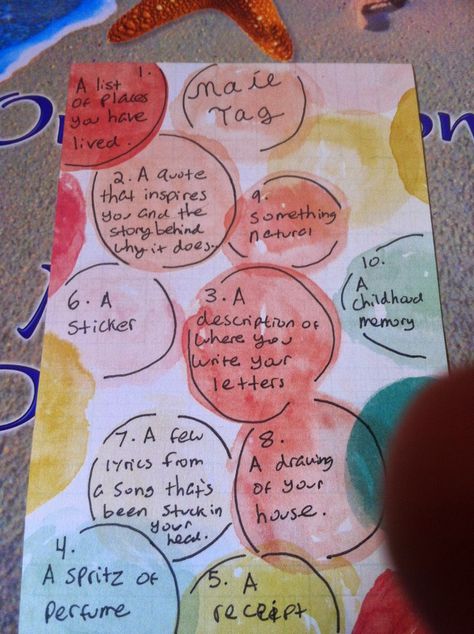 1.
A list
of places
you have
lived.
Mail
Tag
2. A quote
that inspires
you and the
story behind
why it does..
9.
Something
natural
10.
A
childhood
memory
6. A
Sticker
3. A
description of
where you
write your
letters
7. A few
lyrics from
a song that's
been stuck in
your
head.
8.
A drawing
of your
house.
4.
A spritz of
perfume
5. A
receipt